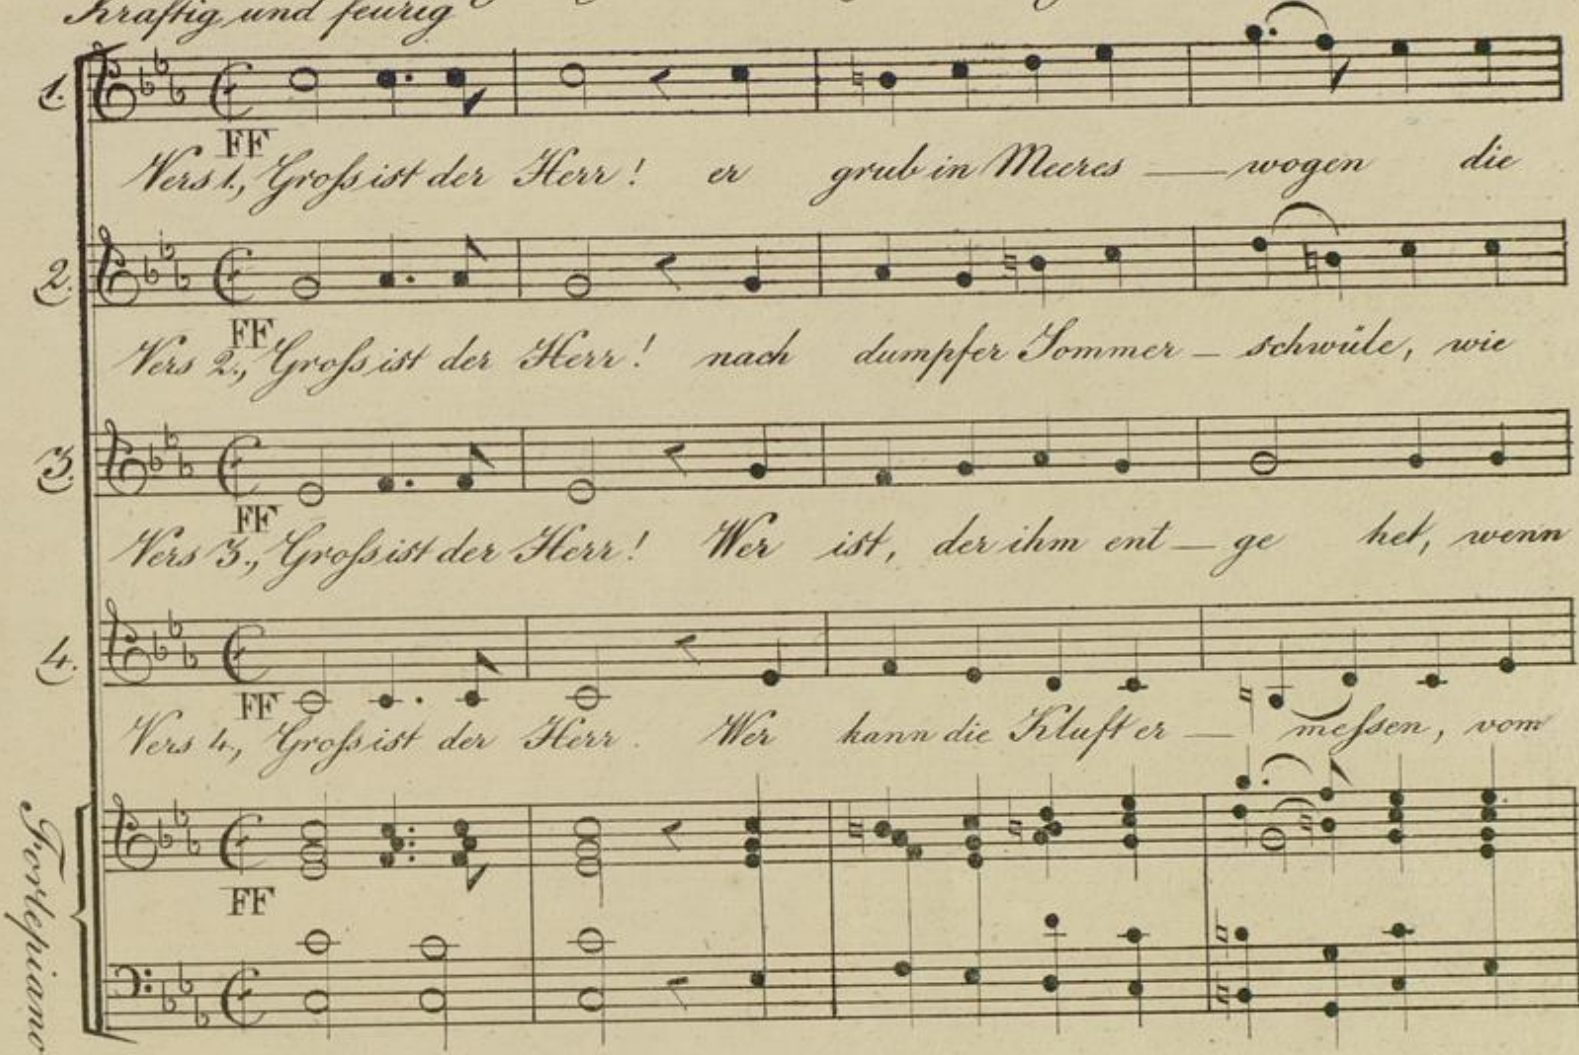 Kraftig und feurig
1.
FF
Vers 1., Groſs ist der Herr! er grub in Meeres — wogen die
2.
FF
Vers 2., Groſs ist der Herr! nach dumpfer Sommer – schwüle, wie
3.
FF
Vers 3., Groſs ist der Herr! Wer ist, der ihm ent – ge het, wenn
4.
FF
Vers 4., Groſs ist der Herr. Wer kann die Kluft er — meſsen, vom
Fortepiano
FF